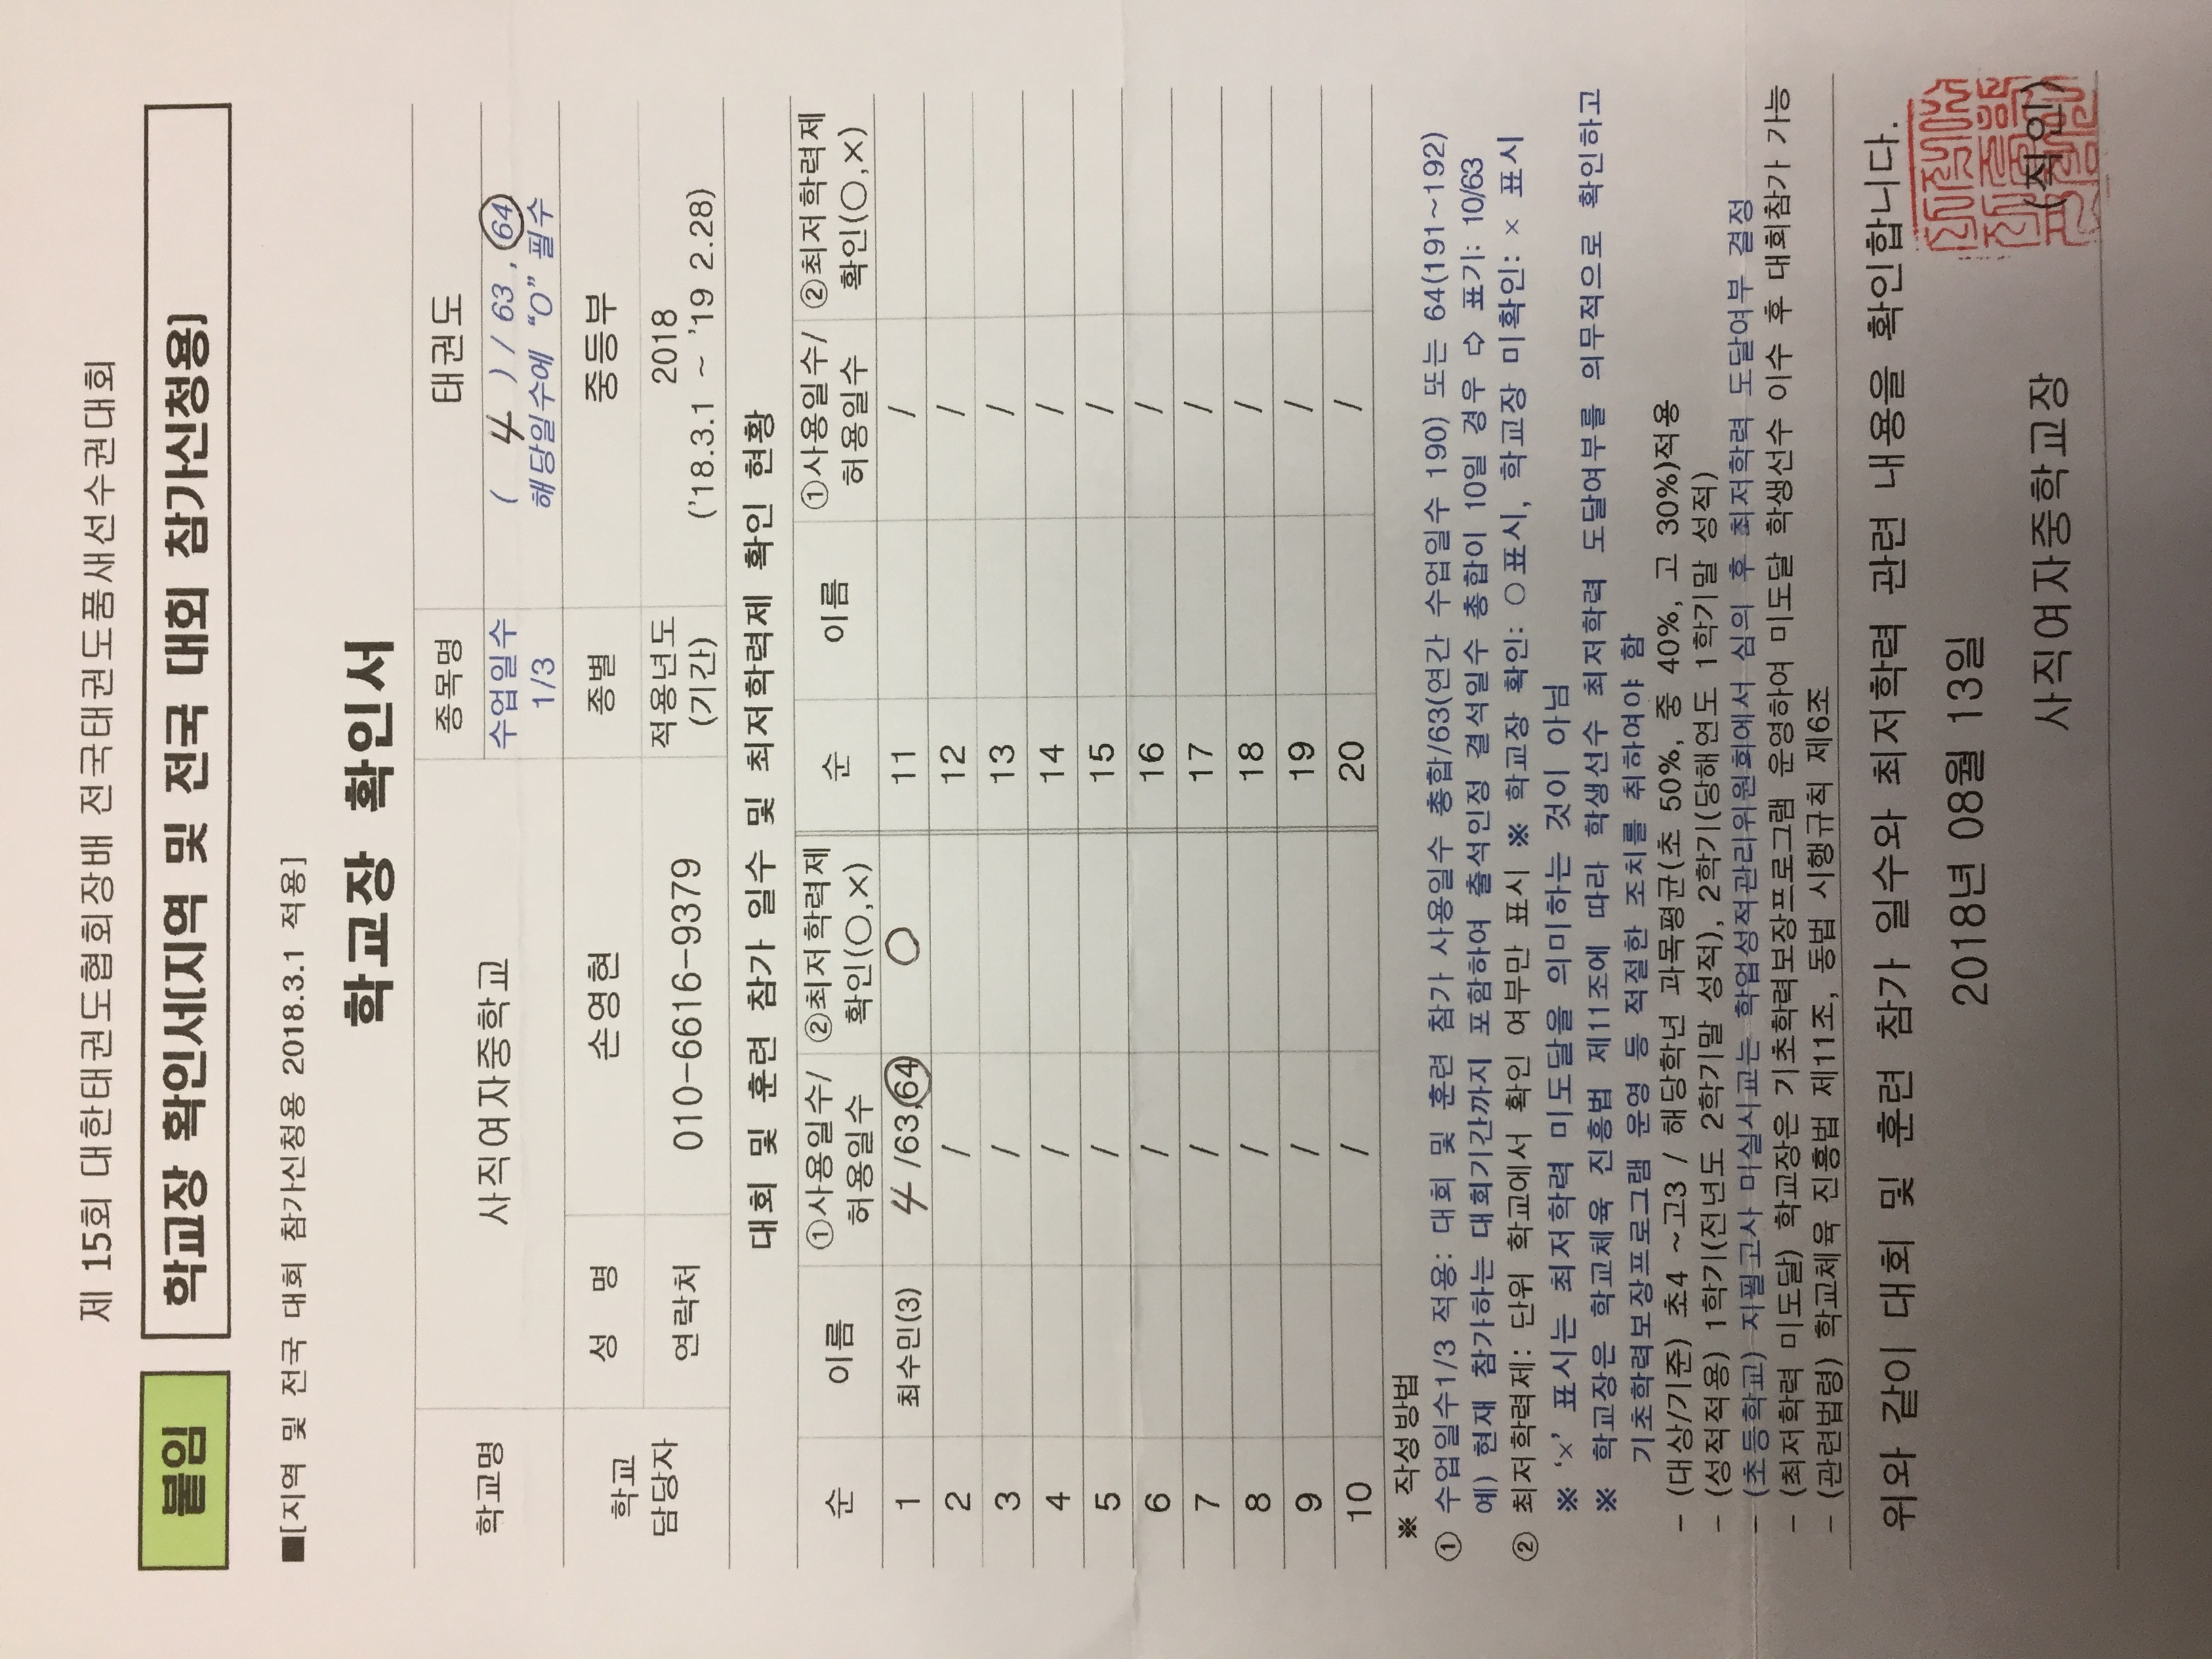 제 15회 대한태권도협회장배 전국태권도품새선수권대회
붙임 학교장 확인서[지역 및 전국 대회 참가신청용]
■[지역 및 전국 대회 참가신청용 2018.3.1 적용]
학교장 확인서
학교명 사직여자중학교 종목명 태권도
수업일수 1/3 ( 4 ) / 63 , 64
해당일수에 "O" 필수
학교 담당자 성 명 손영현 종별 중등부
연락처 010-6616-9379 적용년도 (기간) 2018
('18.3.1 ~ '19 2.28)
대회 및 훈련 참가 일수 및 최저학력제 확인 현황
순 이름 ①사용일수/ 허용일수 ②최저학력제 확인(○,×) 순 이름 ①사용일수/ 허용일수 ②최저학력제 확인(○,×)
1 최수민(3) 4 /63,64 ○ 11 /
2 / 12 /
3 / 13 /
4 / 14 /
5 / 15 /
6 / 16 /
7 / 17 /
8 / 18 /
9 / 19 /
10 / 20 /
※ 작성방법
① 수업일수1/3 적용: 대회 및 훈련 참가 사용일수 총합/63(연간 수업일수 190) 또는 64(191~192)
예) 현재 참가하는 대회기간까지 포함하여 출석인정 결석일수 총합이 10일 경우 ⇨ 표기: 10/63
② 최저학력제: 단위 학교에서 확인 여부만 표시 ※ 학교장 확인: ○표시, 학교장 미확인: × 표시
※ '×' 표시는 최저학력 미도달을 의미하는 것이 아님
※ 학교장은 학교체육 진흥법 제11조에 따라 학생선수 최저학력 도달여부를 의무적으로 확인하고
기초학력보장프로그램 운영 등 적절한 조치를 취하여야 함
- (대상/기준) 초4 ~고3 / 해당학년 과목평균(초 50%, 중 40%, 고 30%)적용
- (성적적용) 1학기(전년도 2학기말 성적), 2학기(당해연도 1학기말 성적)
- (초등학교) 지필고사 미실시교는 학업성적관리위원회에서 심의 후 최저학력 도달여부 결정
- (최저학력 미도달) 학교장은 기초학력보장프로그램 운영하여 미도달 학생선수 이수 후 대회참가 가능
- (관련법령) 학교체육 진흥법 제11조, 동법 시행규칙 제6조
위와 같이 대회 및 훈련 참가 일수와 최저학력 관련 내용을 확인합니다.
2018년 08월 13일
사직여자중학교장 (직인)